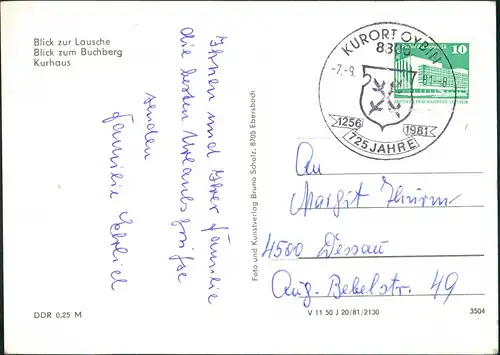 Blick zur Lausche
Blick zum Buchberg
Kurhaus
Ihnen und Ihrer Familie
die besten Urlaubsgrüße
senden
Familie Ehrlich
DDR 0,25 M
Foto und Kunstverlag Bruno Scholz, 8705 Ebersbach
KURORT OYBIN
8806
-7.-9. 81.-8
1256 1981
725 JAHRE
10
An
Margit Thürm
4500 Dessau
Aug.-Bebelstr. 49
V 11 50 J 20/81/2130
3504